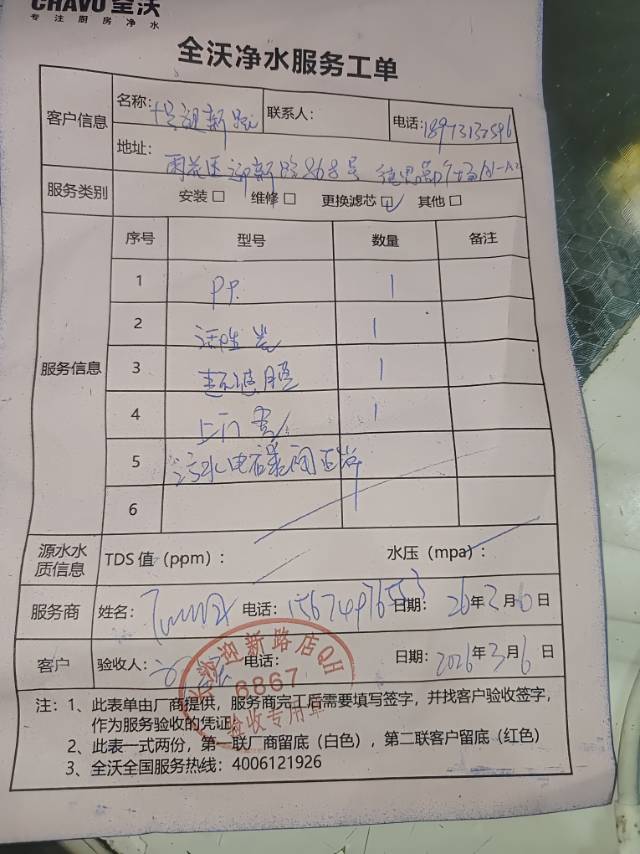 CHAVO 全沃
专注厨房净水
全沃净水服务工单
客户信息
名称： 新路
联系人：
电话：
地址： 雨花区迎新路868号
服务类别
安装□ 维修□ 更换滤芯☑ 其他□
服务信息
序号 型号 数量 备注
1 PP 1
2 活性炭 1
3 超滤膜 1
4 上门费 1
5 污水电磁阀正常
6
源水水质信息
TDS 值（ppm）： 水压（mpa）：
服务商
姓名： 电话： 日期： 26年3月6日
客户
验收人： 电话： 日期： 2026年3月6日
迎新路店QH
6867
验收专用章
注：1、此表单由厂商提供，服务商完工后需要填写签字，并找客户验收签字，
作为服务验收的凭证
2、此表一式两份，第一联厂商留底（白色），第二联客户留底（红色）
3、全沃全国服务热线：4006121926